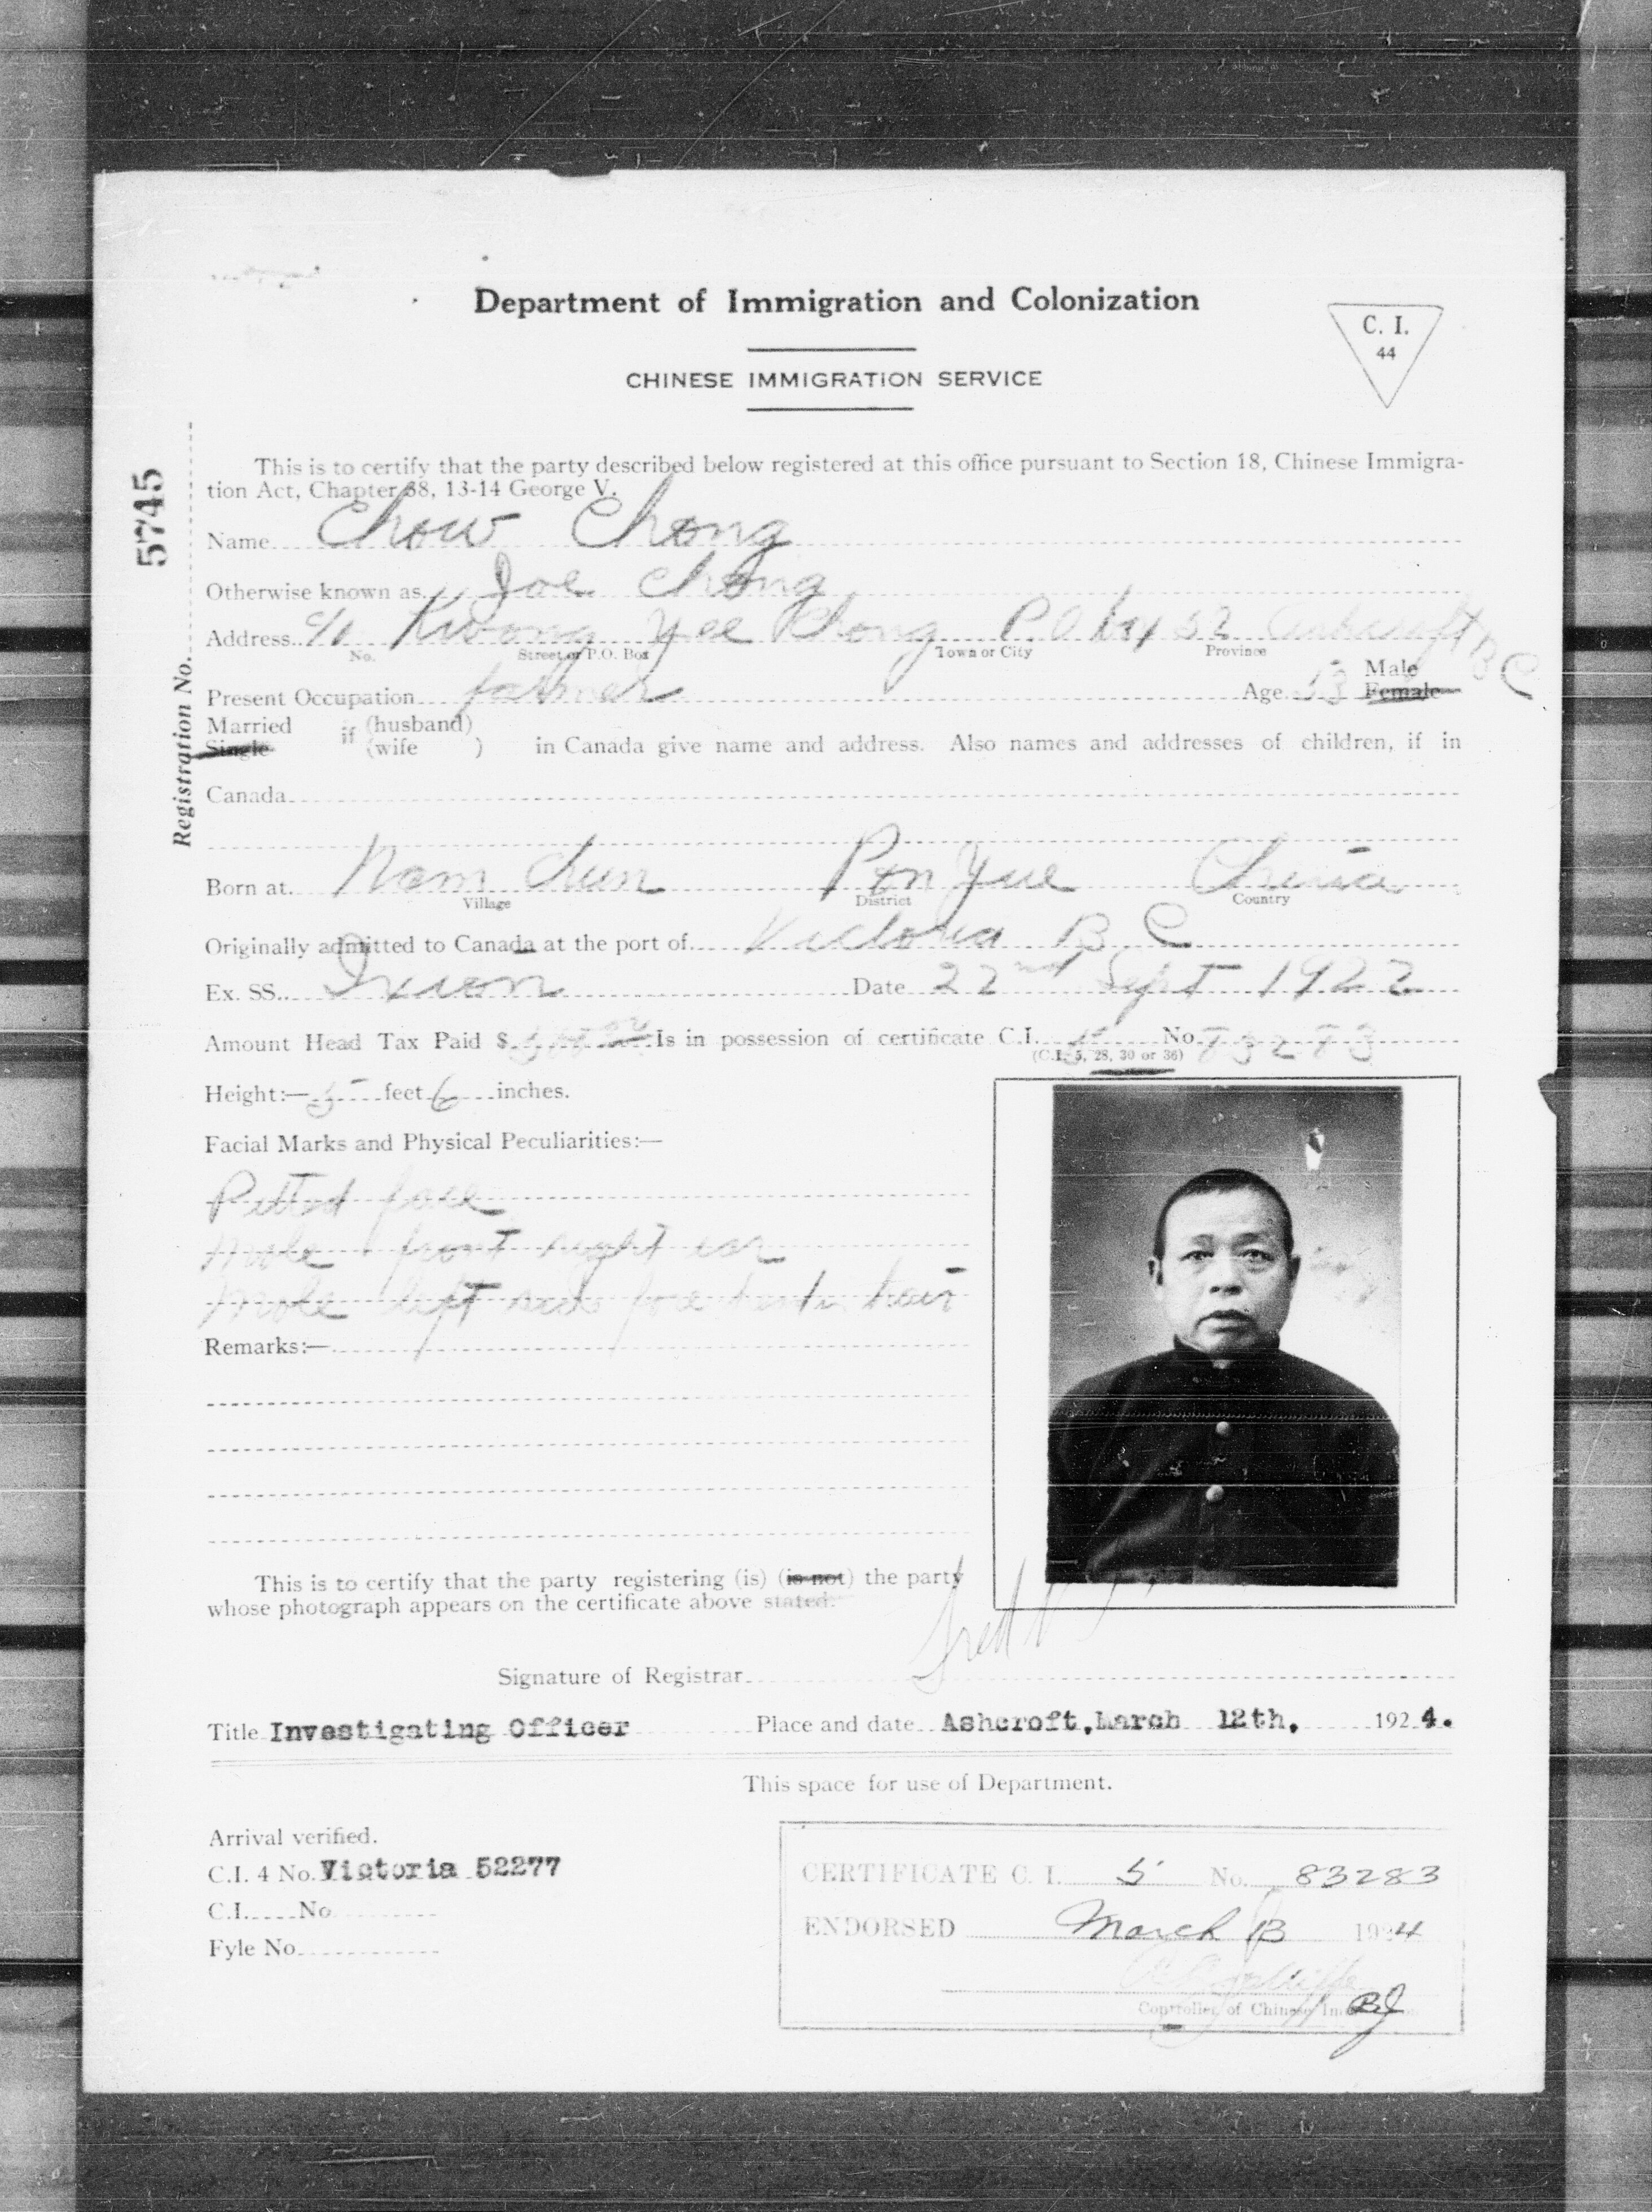 Department of Immigration and Colonization
C. I.
44
CHINESE IMMIGRATION SERVICE
5745
Registration No.
This is to certify that the party described below registered at this office pursuant to Section 18, Chinese Immigra-
tion Act, Chapter 38, 13-14 George V.
Name Chow Chong
Otherwise known as Joe Chong
Address c/o Kwong Yee Chong P.O Box 52 Ashcroft BC
No. Street or P.O. Box Town or City Province
Present Occupation farmer Age 53 Male Female
Married
Single if (husband)
(wife ) in Canada give name and address. Also names and addresses of children, if in
Canada
Born at Nam Chun Pon Yue China
Village District Country
Originally admitted to Canada at the port of Victoria B C
Ex. SS. Ixion Date 22nd Sept 1922
Amount Head Tax Paid $ 500.00 Is in possession of certificate C.I. 5 No.
(C.I. 5, 28, 30 or 36)
Height:— 5 feet 6 inches.
Facial Marks and Physical Peculiarities:—
Pitted face
Mole front right ear
Mole left side forehead in hair
Remarks:—
This is to certify that the party registering (is) (is not) the party
whose photograph appears on the certificate above stated.
Signature of Registrar Fred
Title Investigating Officer Place and date Ashcroft, March 12th, 1924.
This space for use of Department.
Arrival verified.
C.I. 4 No. Victoria 52277
C.I. No
Fyle No
CERTIFICATE C. I. 5 No. 83283
ENDORSED March 13 1924
Controller of Chinese Im
BJ